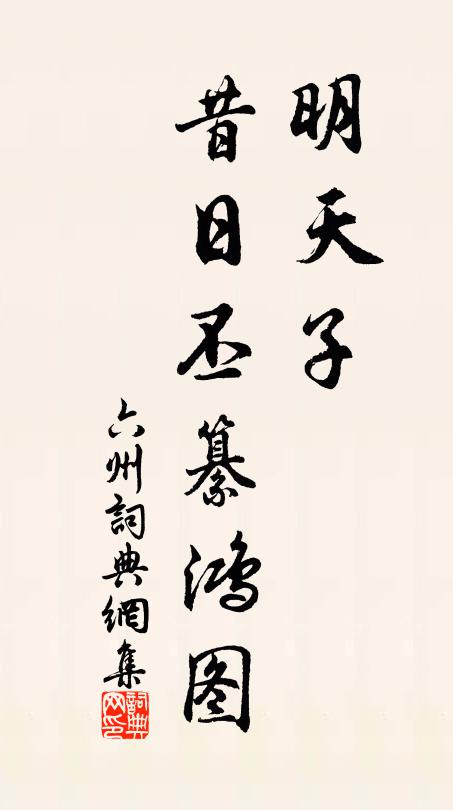 明天子
昔日丕纂鸿图
六州詞典網集
詞典
网印